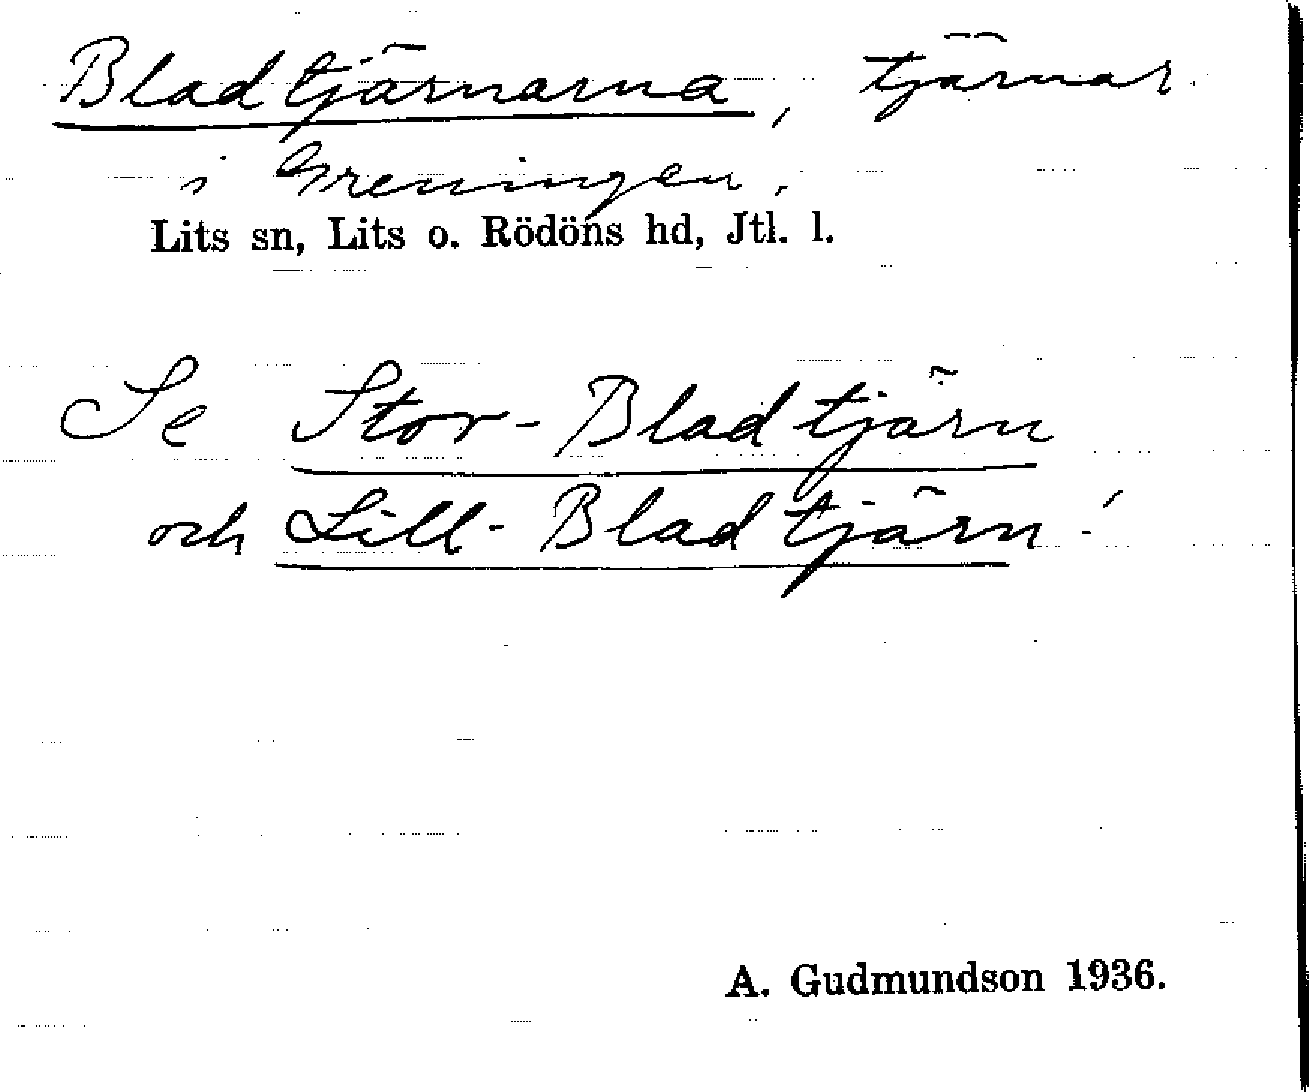 Bladtjärnarna, tjärnar
i Greningen,
Lits sn, Lits o. Rödöns hd, Jtl. l.
Se Stor-Bladtjärn
och Lill-Bladtjärn!
A. Gudmundson 1936.